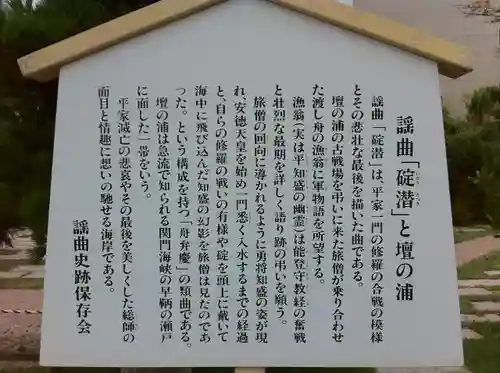 謡曲「碇潜」と壇の浦
いかり
かづき
謡曲「碇潜」は、平家一門の修羅の合戦の模様
とその悲壮な最後を描いた曲である。
壇の浦の古戦場を弔いに来た旅僧が乗り合わせ
た渡し舟の漁翁に軍物語を所望する。
漁翁(実は平知盛の幽霊)は能登守教経の奮戦
と壮烈な最期を詳しく語り跡の弔いを願う。
旅僧の回向に導かれるように勇将知盛の姿が現
れ、安徳天皇を始め一門悉く入水するまでの経過
と、自らの修羅の戦いの有様や碇を頭上に戴いて
海中に飛び込んだ知盛の幻影を旅僧は見たのであ
った。という構成を持つ「舟弁慶」の類曲である。
壇の浦は急流で知られる関門海峡の早鞆の瀬戸
に面した一帯をいう。
平家滅亡の悲哀やその最後を美しくした総師の
面目と情趣に想いの馳せる海岸である。
謡曲史跡保存会